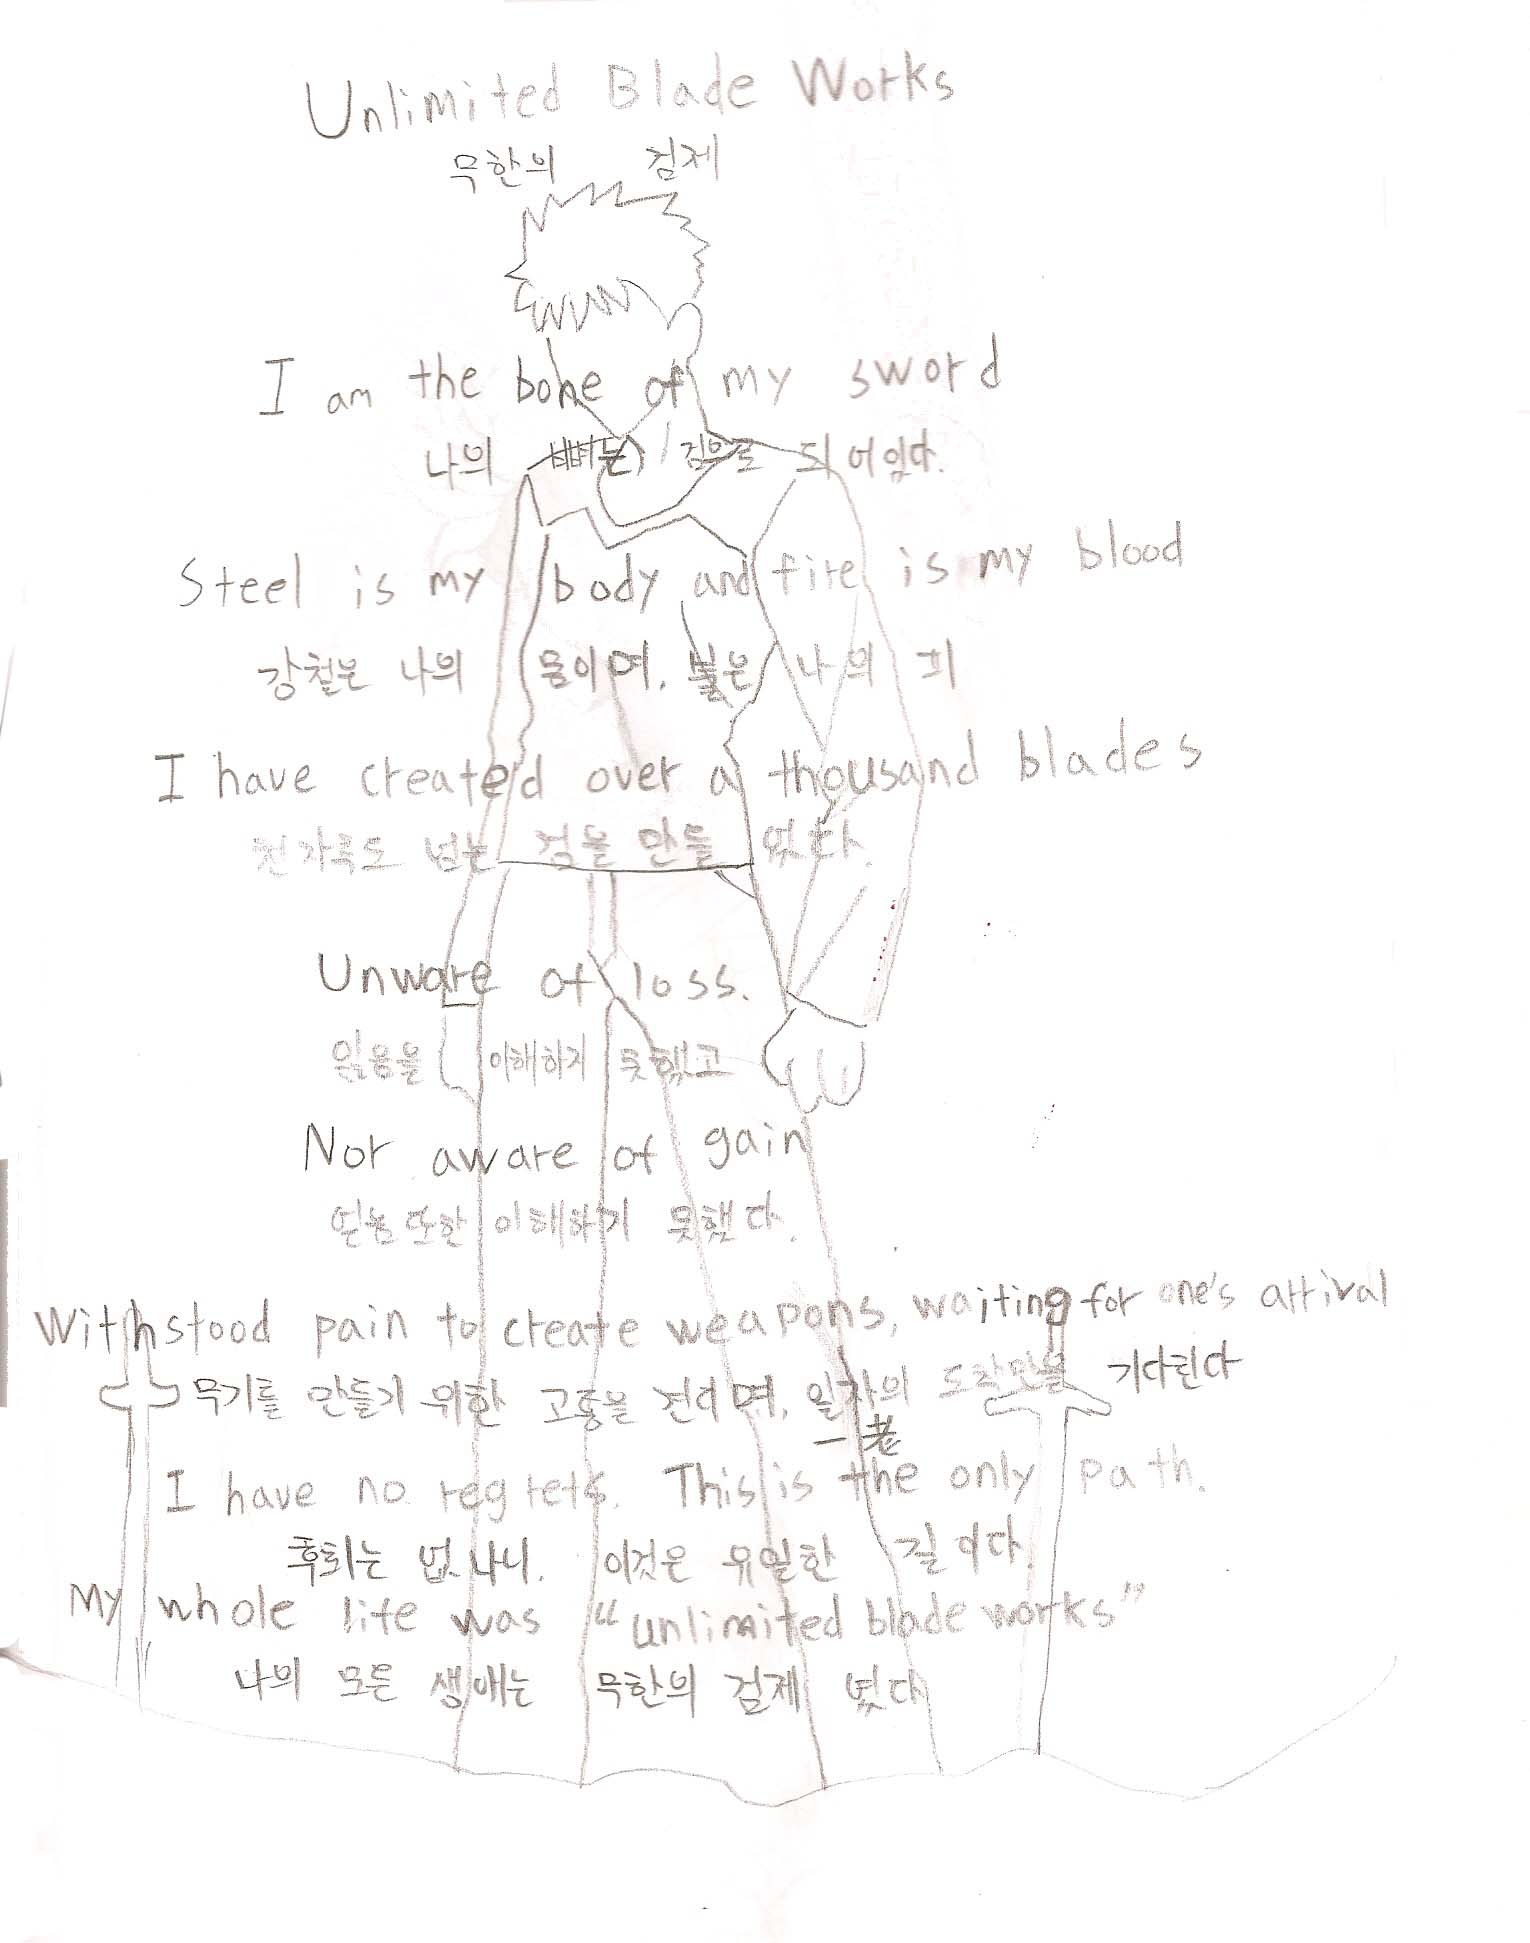 Unlimited Blade Works
무한의 검제
I am the bone of my sword
나의 뼈는 검으로 되어있다.
Steel is my body and fire is my blood
강철은 나의 몸이며, 불은 나의 피
I have created over a thousand blades
천자루도 넘는 검을 만들었다.
Unware of loss.
잃음을 이해하지 못했고
Nor aware of gain
얻눔 또한 이해하지 못했다.
Withstood pain to create weapons, waiting for one's arrival
무기를 만들기 위한 고통을 견디며, 일자의 도착만을 기다린다
一老
I have no regrets. This is the only path.
후회는 없나니. 이것은 유일한 길이다.
My whole life was "unlimited blade works"
나의 모든 생애는 무한의 검제 였다